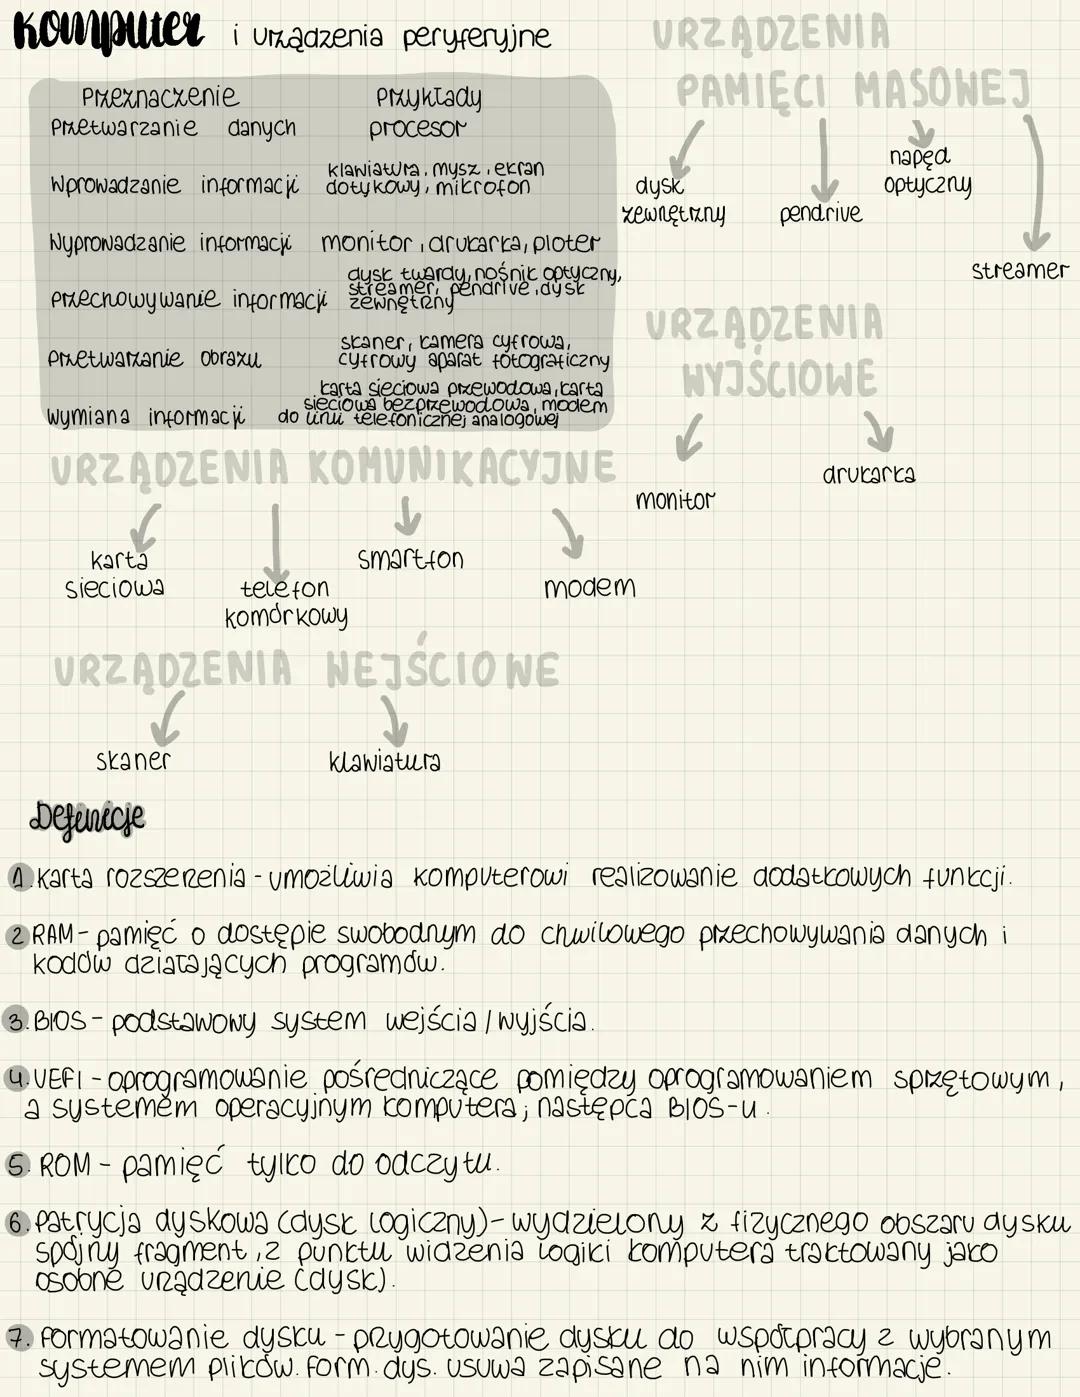 Komputer i urządzenia peryferyjne
Przeznaczenie Przykłady
Przetwarzanie danych procesor
Wprowadzanie informacji klawiatura, mysz, ekran
dotykowy, mikrofon
Wyprowadzanie informacji monitor, drukarka, ploter
Przechowywanie informacji dysk twardy, nośnik optyczny,
streamer, pendrive, dysk
zewnętrzny
Przetwarzanie obrazu skaner, kamera cyfrowa,
cyfrowy aparat fotograficzny
wymiana informacji karta sieciowa przewodowa, karta
sieciowa bezprzewodowa, modem
do linii telefonicznej analogowej
URZĄDZENIA
PAMIĘCI MASOWEJ
dysk
zewnętrzny
pendrive
napęd
optyczny
streamer
URZĄDZENIA
WYJŚCIOWE
monitor
drukarka
URZĄDZENIA KOMUNIKACYJNE
karta
sieciowa
telefon
komórkowy
smartfon
modem
URZĄDZENIA WEJŚCIOWE
skaner
klawiatura
Definicje
1. Karta rozszerzenia - umożliwia komputerowi realizowanie dodatkowych funkcji.
2 RAM - pamięć o dostępie swobodnym do chwilowego przechowywania danych i
kodów działających programów.
3. BIOS - podstawowy system wejścia / wyjścia.
4. UEFI - oprogramowanie pośredniczące pomiędzy oprogramowaniem sprzętowym,
a systemem operacyjnym komputera; następca BIOS-u.
5. ROM - pamięć tylko do odczytu.
6. Patrycja dyskowa (dysk logiczny) - wydzielony z fizycznego obszaru dysku
spójny fragment, z punktu widzenia logiki komputera traktowany jako
osobne urządzenie (dysk).
7. Formatowanie dysku - przygotowanie dysku do współpracy z wybranym
systemem plików. Form. dys. usuwa zapisane na nim informacje.